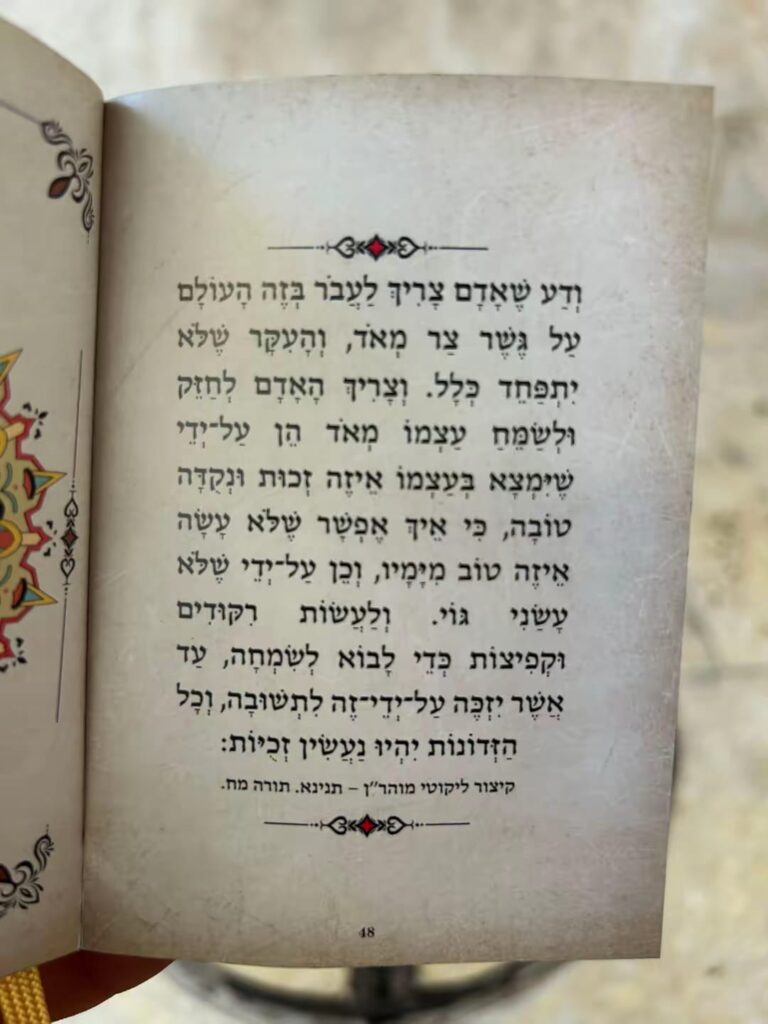 וְדַע שֶׁאָדָם צָרִיךְ לַעֲבֹר בְּזֶה הָעוֹלָם
עַל גֶּשֶׁר צַר מְאֹד, וְהָעִקָּר שֶׁלֹּא
יִתְפַּחֵד כְּלָל. וְצָרִיךְ הָאָדָם לְחַזֵּק
וּלְשַׂמֵּחַ עַצְמוֹ מְאֹד הֵן עַל־יְדֵי
שֶׁיִּמְצָא בְּעַצְמוֹ אֵיזֶה זְכוּת וּנְקֻדָּה
טוֹבָה, כִּי אֵיךְ אֶפְשָׁר שֶׁלֹּא עָשָׂה
אֵיזֶה טוֹב מִיָּמָיו, וְכֵן עַל־יְדֵי שֶׁלֹּא
עָשַׂנִי גּוֹי. וְלַעֲשׂוֹת רִקּוּדִים
וּקְפִיצוֹת כְּדֵי לָבוֹא לְשִׂמְחָה, עַד
אֲשֶׁר יִזְכֶּה עַל־יְדֵי־זֶה לִתְשׁוּבָה, וְכָל
הַזְּדוֹנוֹת יִהְיוּ נַעֲשִׂין זְכֻיּוֹת:
קיצור ליקוטי מוהר״ן – תנינא. תורה מח.
48